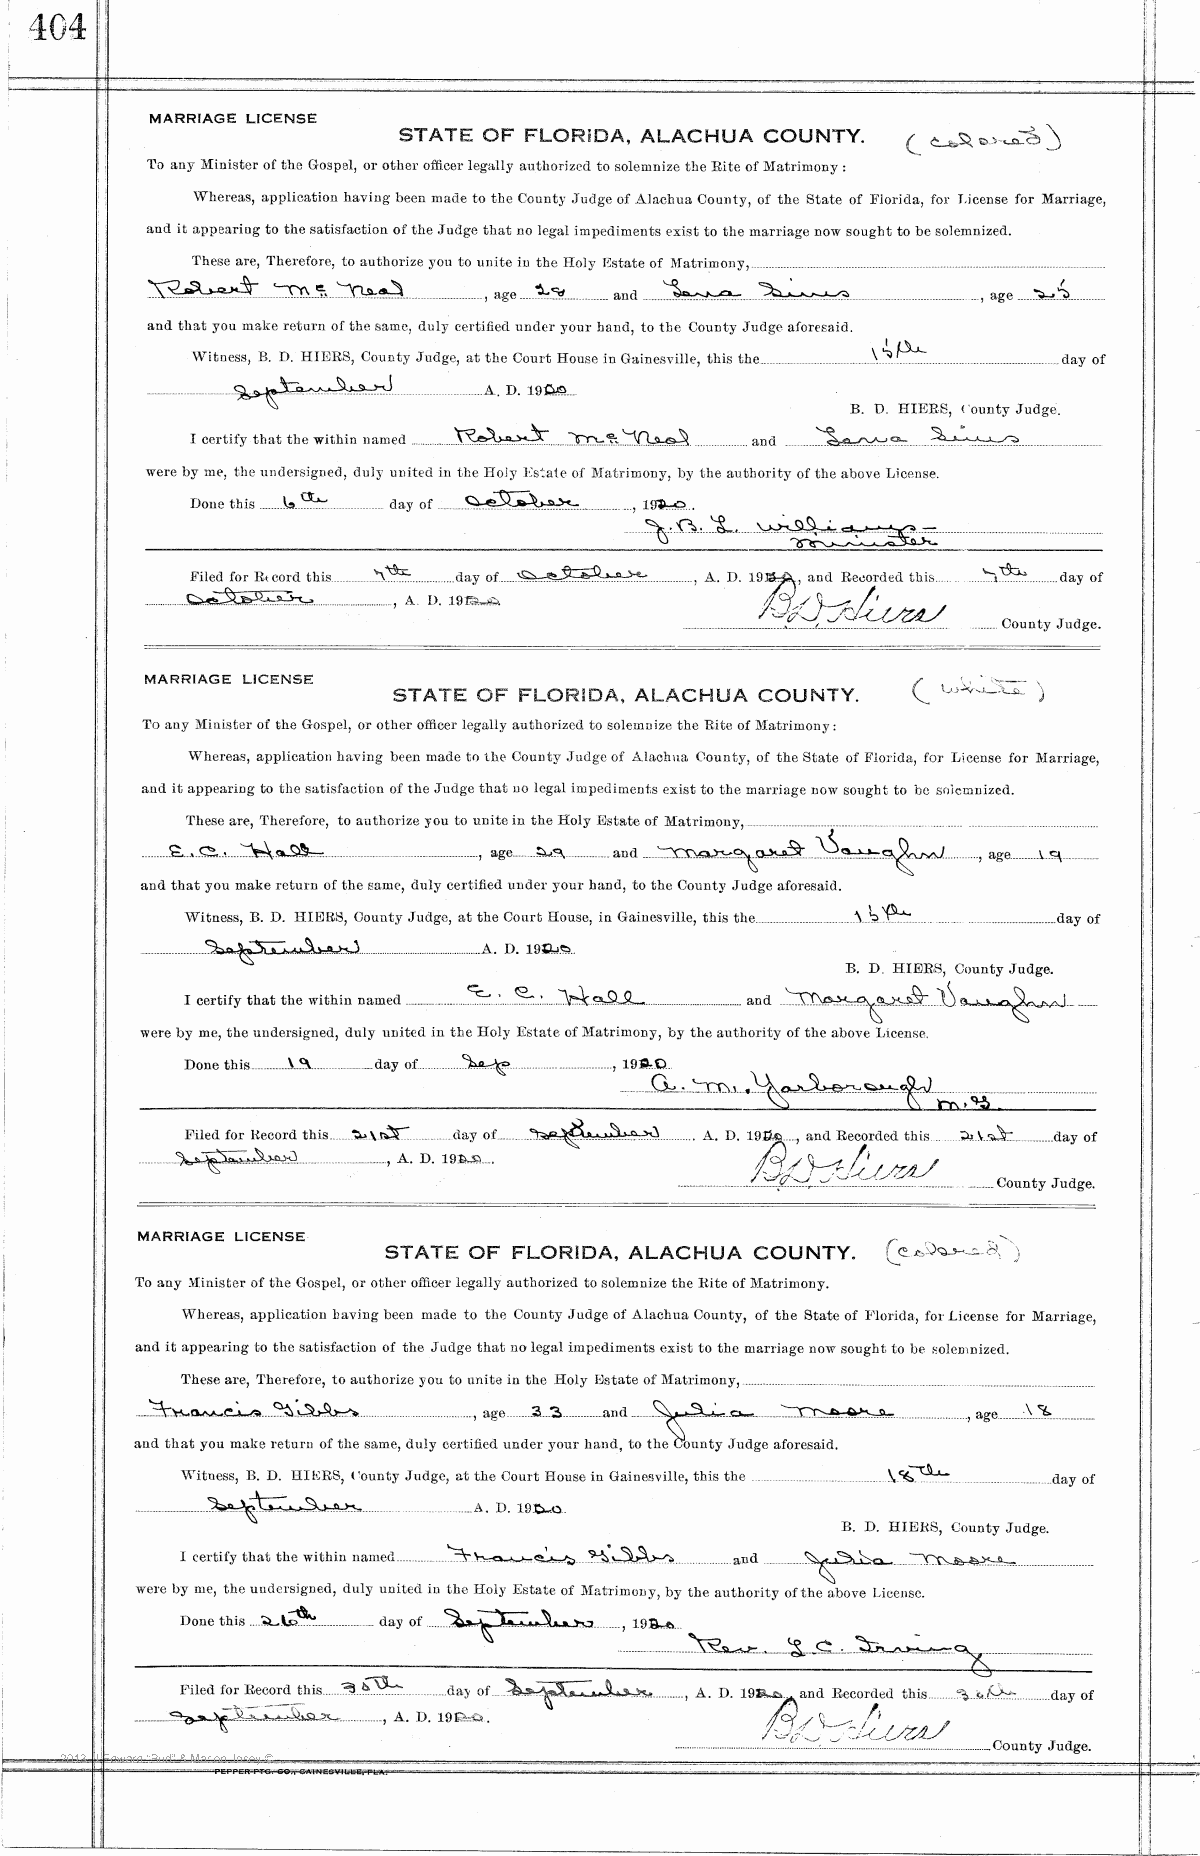 404
MARRIAGE LICENSE
STATE OF FLORIDA, ALACHUA COUNTY. (colored)
To any Minister of the Gospel, or other officer legally authorized to solemnize the Rite of Matrimony:
Whereas, application having been made to the County Judge of Alachua County, of the State of Florida, for License for Marriage,
and it appearing to the satisfaction of the Judge that no legal impediments exist to the marriage now sought to be solemnized.
These are, Therefore, to authorize you to unite in the Holy Estate of Matrimony,
Robert McNeal, age 28 and Lena Sims, age 25
and that you make return of the same, duly certified under your hand, to the County Judge aforesaid.
Witness, B. D. HIERS, County Judge, at the Court House in Gainesville, this the 15th day of
September A. D. 1920
B. D. HIERS, County Judge.
I certify that the within named Robert McNeal and Lena Sims
were by me, the undersigned, duly united in the Holy Estate of Matrimony, by the authority of the above License.
Done this 6th day of October, 1920.
J. B. L. Williams-
Minister
Filed for Record this 7th day of October, A. D. 1920, and Recorded this 7th day of
October, A. D. 1920
B D Hiers County Judge.
MARRIAGE LICENSE
STATE OF FLORIDA, ALACHUA COUNTY. (white)
To any Minister of the Gospel, or other officer legally authorized to solemnize the Rite of Matrimony:
Whereas, application having been made to the County Judge of Alachua County, of the State of Florida, for License for Marriage,
and it appearing to the satisfaction of the Judge that no legal impediments exist to the marriage now sought to be solemnized.
These are, Therefore, to authorize you to unite in the Holy Estate of Matrimony,
E. C. Hall, age 29 and Margaret Vaughn, age 19
and that you make return of the same, duly certified under your hand, to the County Judge aforesaid.
Witness, B. D. HIERS, County Judge, at the Court House, in Gainesville, this the 15th day of
September A. D. 1920
B. D. HIERS, County Judge.
I certify that the within named E. C. Hall and Margaret Vaughn
were by me, the undersigned, duly united in the Holy Estate of Matrimony, by the authority of the above License.
Done this 19 day of Sep, 1920
A. M. Yarborough
M.G.
Filed for Record this 21st day of September. A. D. 1920, and Recorded this 21st day of
September, A. D. 1920.
B D Hiers County Judge.
MARRIAGE LICENSE
STATE OF FLORIDA, ALACHUA COUNTY. (colored)
To any Minister of the Gospel, or other officer legally authorized to solemnize the Rite of Matrimony.
Whereas, application having been made to the County Judge of Alachua County, of the State of Florida, for License for Marriage,
and it appearing to the satisfaction of the Judge that no legal impediments exist to the marriage now sought to be solemnized.
These are, Therefore, to authorize you to unite in the Holy Estate of Matrimony,
Francis Gibbs, age 33 and Julia Moore, age 18
and that you make return of the same, duly certified under your hand, to the County Judge aforesaid.
Witness, B. D. HIERS, County Judge, at the Court House in Gainesville, this the 18th day of
September A. D. 1920
B. D. HIERS, County Judge.
I certify that the within named Francis Gibbs and Julia Moore
were by me, the undersigned, duly united in the Holy Estate of Matrimony, by the authority of the above License.
Done this 26th day of September, 1920
Rev. L. C. Irving
Filed for Record this 30th day of September, A. D. 1920, and Recorded this 30th day of
September, A. D. 1920.
B D Hiers County Judge.
PEPPER PTG. CO., GAINESVILLE, FLA.